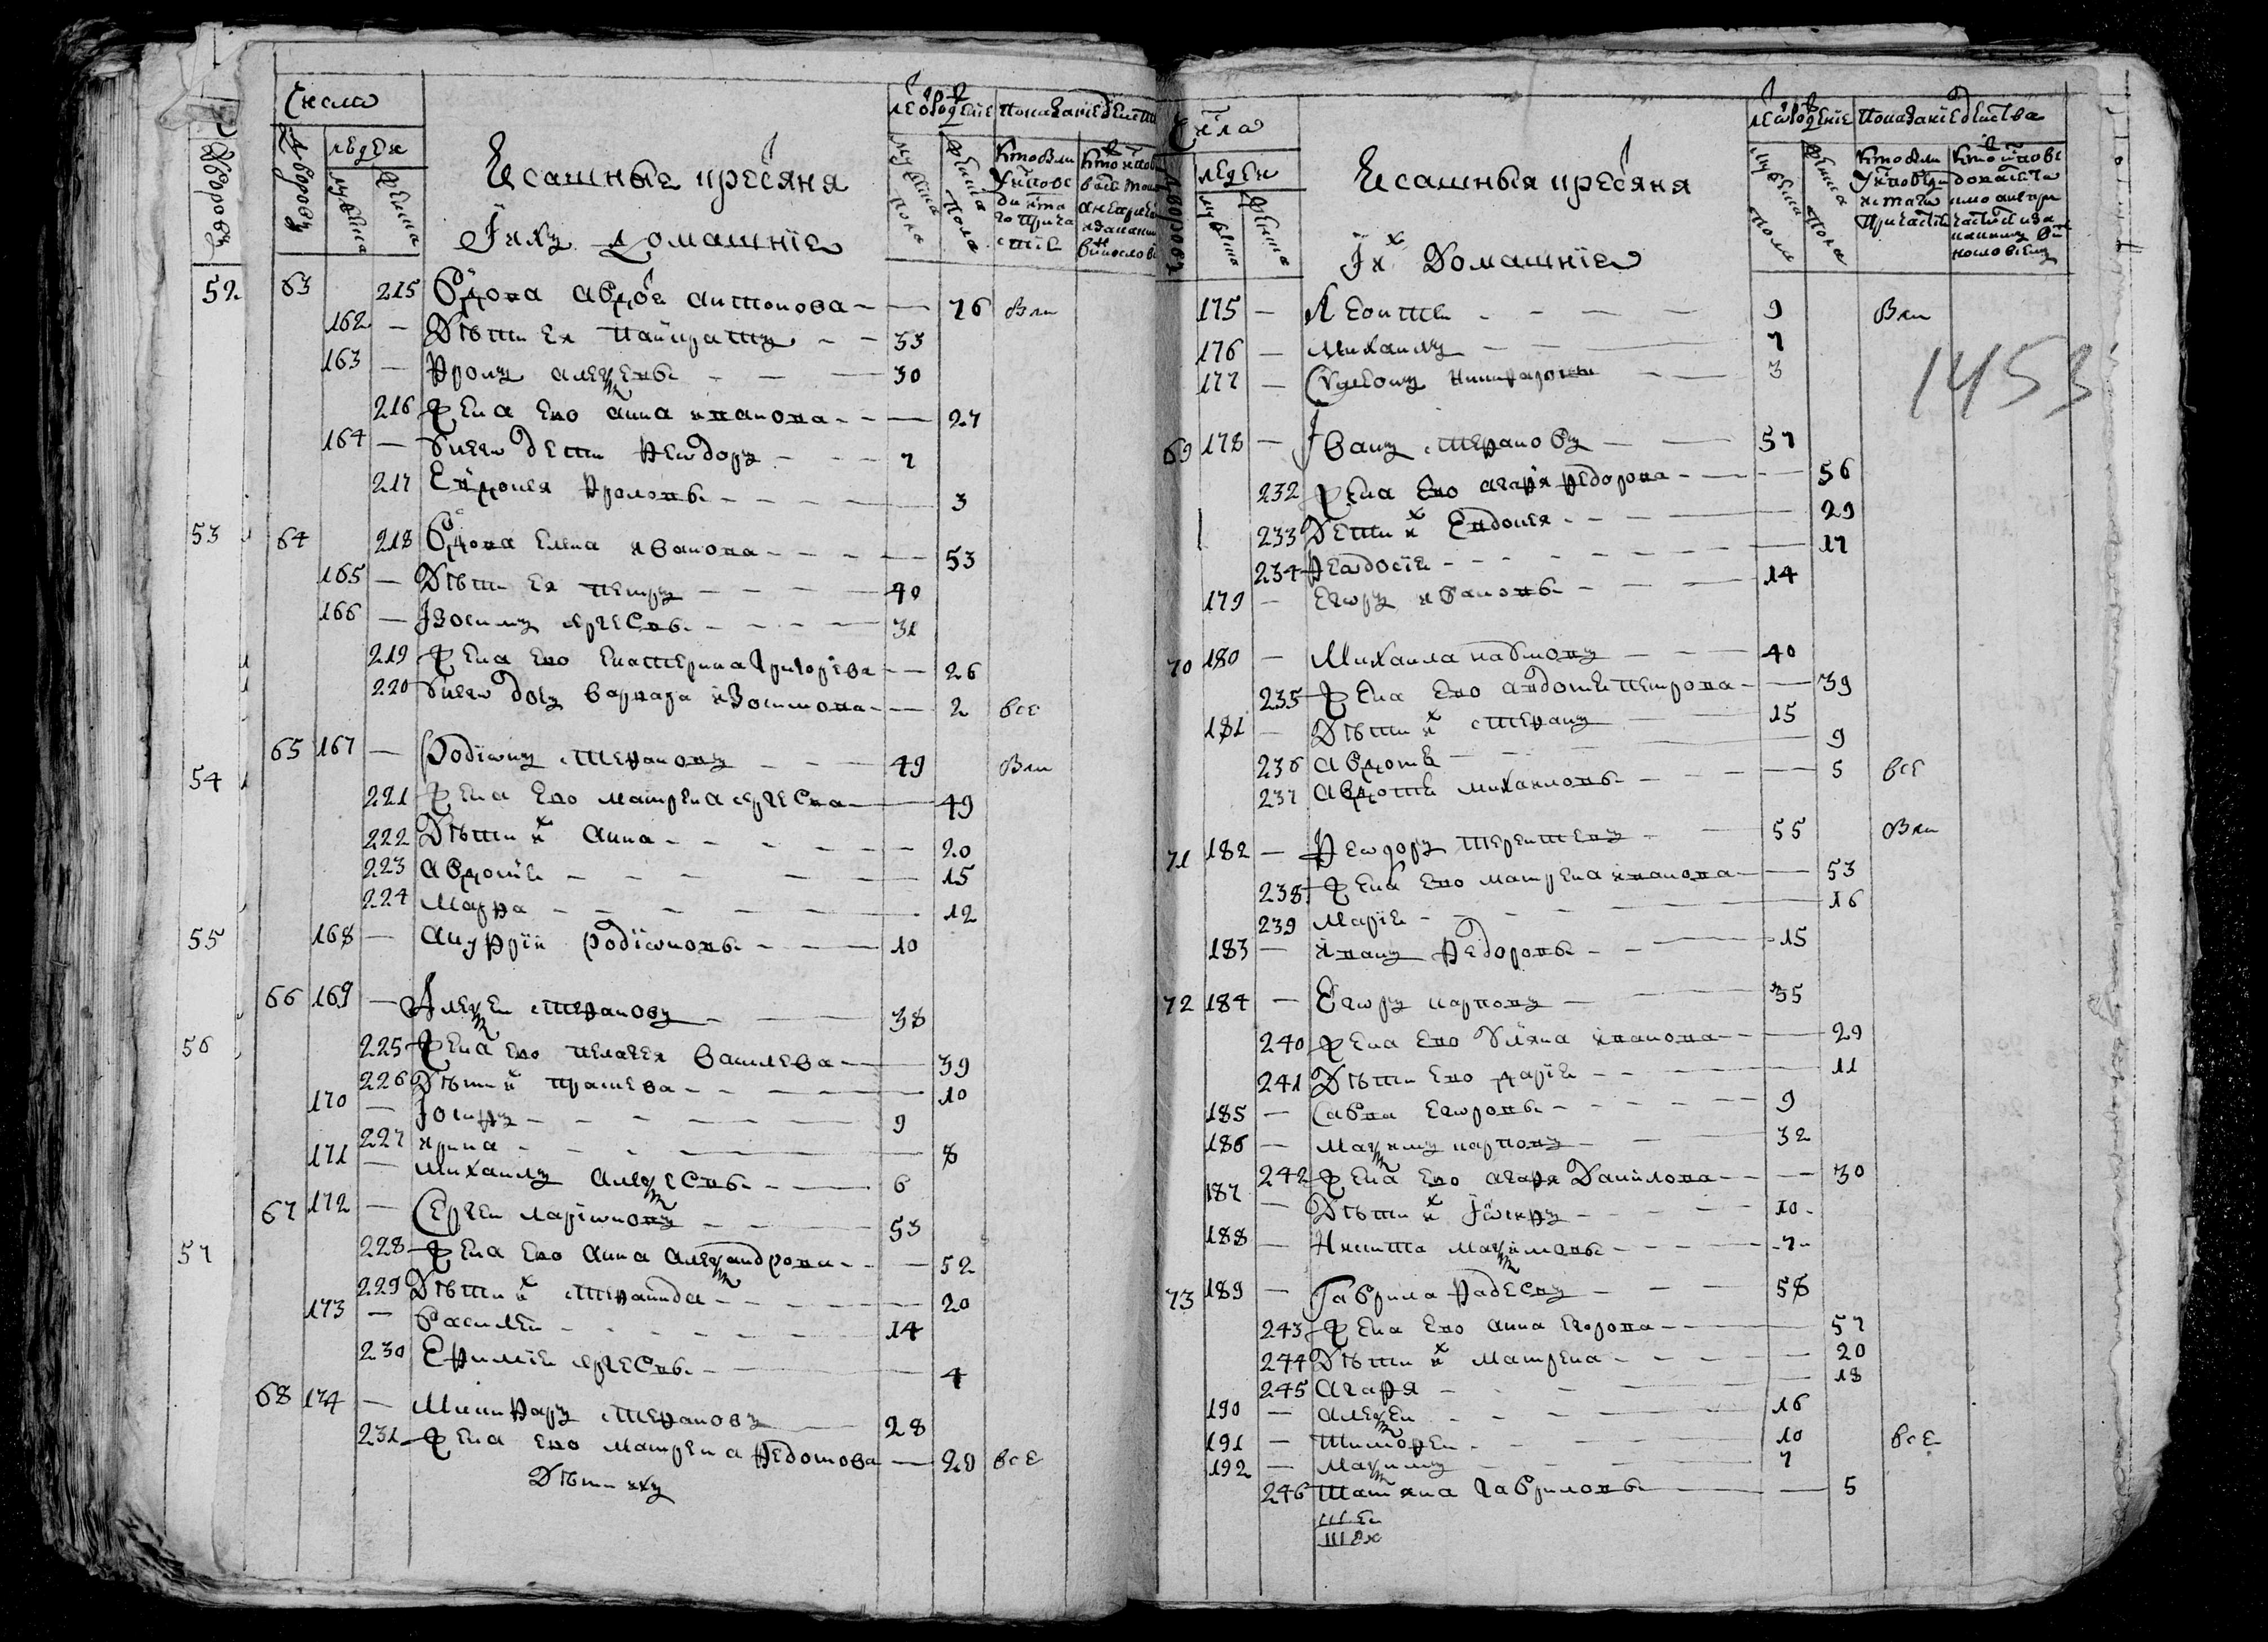 Число
Дворовъ
людей
мужеска
женска
Ясашные кресяня
Іихъ домашніе
лѣ ѿ рожденіе
мужеска пола
женска пола
Показаніе действа
52 63 215 Вдова Авдотя Антонова 76 были
162 Дѣти ея Панкратъ 33
163 Фролъ Алексеевы 30
216 Жена ево Анна Иванова 27
164 У нево дети Феѡдоръ 7
217 Евдокея Фроловы 3
53 64 218 Вдова Елена Иванова 53
165 Дѣти ея Петръ 40
166 Ізосимъ Сергеевы 31
219 Жена ево Екатерина Григорьева 26
220 У нево дочь Варвара Изосимова 2 все
54 65 167 Родіѡнъ Стефановъ 49 были
221 Жена ево Матрена Сергеева 49
222 Дѣти их Анна 20
223 Авдотія 15
224 Марфа 12
55 168 Ануфрій Родіѡновы 10
66 169 Алексей Стефановъ 38
56 225 Жена ево Пелагея Василева 39
226 Дѣти их Прасковя 10
170 Іосифъ 9
227 Ирина 8
171 Михаилъ Алексеевы 6
67 172 Сергей Ларіѡновъ 53
57 228 Жена ево Анна Александрова 52
229 Дѣти их Степанида 20
173 Василей 14
230 Ефимія Сергеевы 4
68 174 Никифоръ Стефановъ 28
231 Жена ево Матрена Федотова 29 все
Дѣти ихъ
Числа
Дворовъ
людей
мужеска
женска
Ясашныя кресяня
Их Домашніе
лѣ ѿ рожденіе
мужеска пола
женска пола
Показаніе действа
175 Леонтей 9 были
176 Михаилъ 7
177 Никифоровы 3
1453
69 178 Іванъ Стефановъ 57
232 Жена ево Агафя Федорова 56
233 Дети их Евдокея 29
234 Феѡдосія 17
179 Егѡръ Ивановы 14
70 180 Михаила 40
235 Жена ево Авдотя Петрова 39
181 Дѣти их Стефанъ 15
236 Авдотя 9
237 Авдотя Михаиловы 5 все
71 182 Феѡдоръ Терентевъ 55 были
238 Жена ево Матрена Иванова 53
239 Марія 16
183 Иванъ Федоровы 15
72 184 Егѡръ Карповъ 35
240 Жена ево Уляна Иванова 29
241 Дѣти ево Дарія 11
185 Савва Егѡровы 9
186 Максимъ Карповъ 32
242 Жена ево Агафя Данилова 30
187 Дѣти их Іѡсифъ 10
188 Никита Максимовы 7
73 189 Гаврила Фадеевъ 58
243 Жена ево Анна Егорова 57
244 Дѣти их Матрена 20
245 Агафя 18
190 Алексей 16
191 Тимофей 10 все
192 Максимъ 7
246 Татяна Гавриловы 5